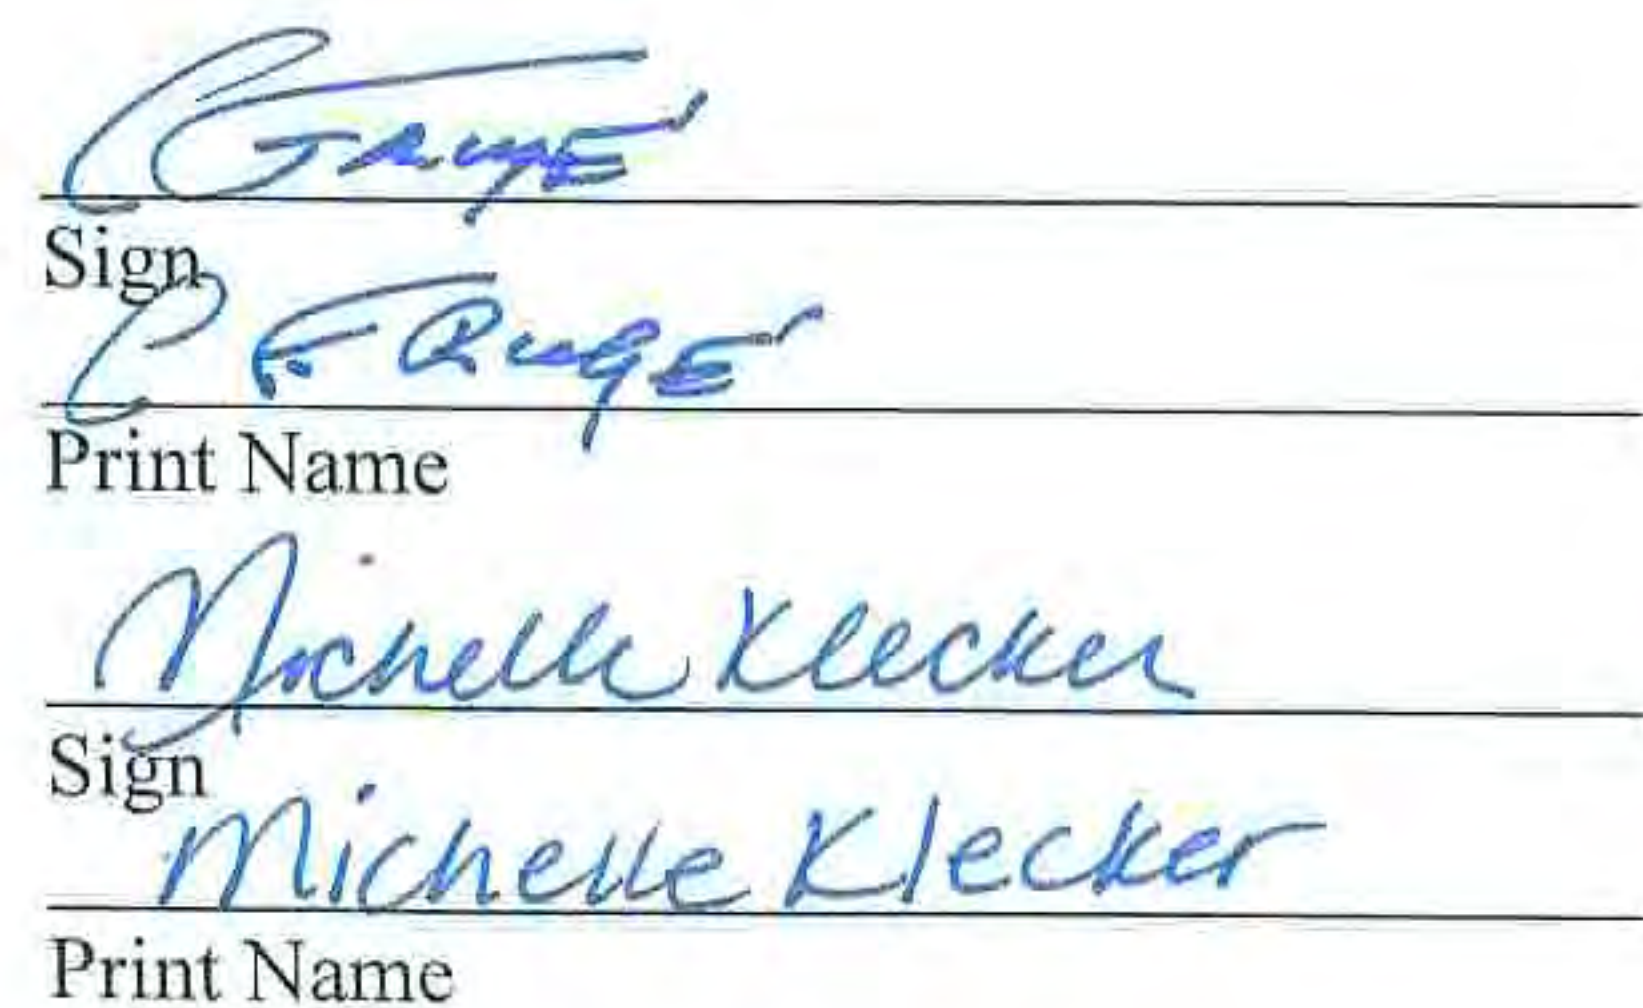 Sign
C F Ruge
Print Name
Michelle Klecker
Sign
Michelle Klecker
Print Name